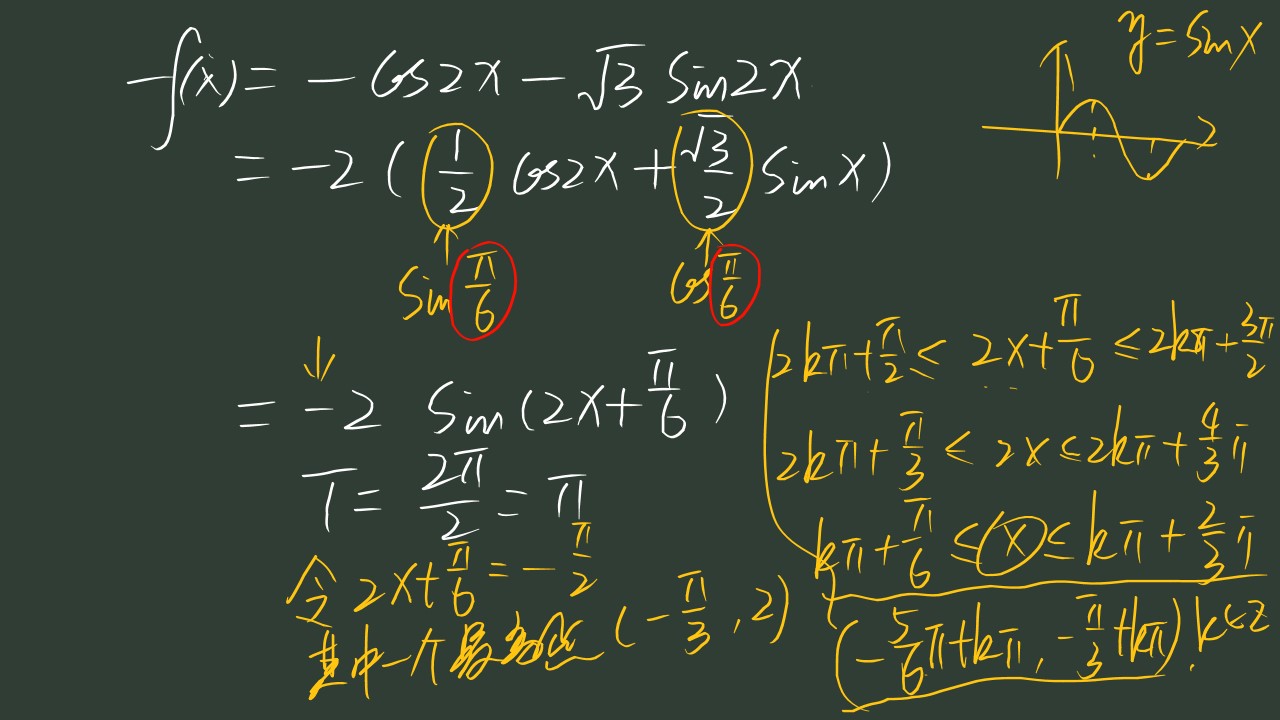 f(x) = -cos2x - √3 sin2x
= -2 ( 1/2 cos2x + √3/2 sinx )
sin π/6 cos π/6
= -2 sin(2x + π/6)
T = 2π/2 = π
令 2x + π/6 = -π/2
其中一个最高点 (-π/3, 2)
y = sinx
2kπ + π/2 ≤ 2x + π/6 ≤ 2kπ + 3π/2
2kπ + π/3 ≤ 2x ≤ 2kπ + 4/3 π
kπ + π/6 ≤ x ≤ kπ + 2/3 π
(-5/6 π + kπ, -π/3 + kπ), k∈Z